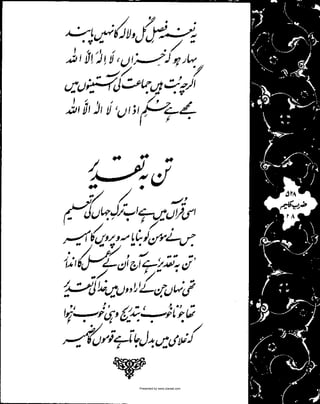 یہ نغمہ فصلِ گل و لالہ کا نہیں پابند
بہار ہو کہ خزاں، لا الٰہ الا اللہ
اگرچہ بت ہیں جماعت کی آستینوں میں
مجھے ہے حکمِ اذاں، لا الٰہ الا اللہ
تن بہ تقدیر
اسی قرآں میں ہے اب ترکِ جہاں کی تعلیم
جس نے مومن کو بنایا مہ و پرویں کا امیر
'تن بہ تقدیر' ہے آج ان کے عمل کا انداز
تھی نہاں جن کے ارادوں میں خدا کی تقدیر
تھا جو 'ناخوب، بتدریج وہی' خوب' ہوا
کہ غلامی میں بدل جاتا ہے قوموں کا ضمیر
۵۲۸
ضربِ کلیم
۲۸
Presented by www.ziaraat.com